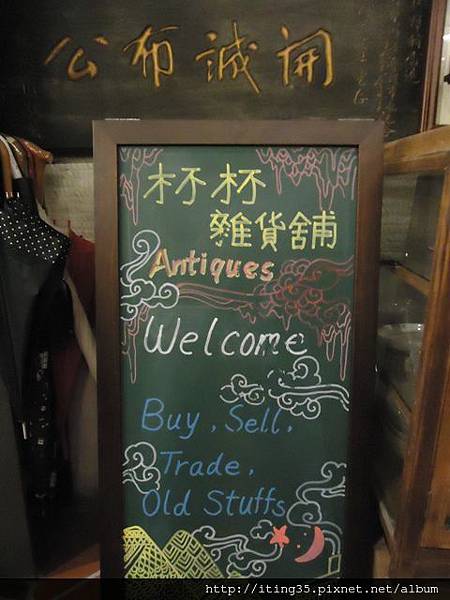 開誠布公
杯杯
雜貨舖
Antiques
Welcome
Buy, Sell,
Trade,
Old Stuffs
http://iting35.pixnet.net/album